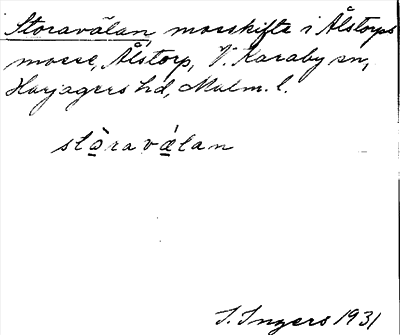 Storavålan, mosskifte i Ålstorps
mosse, Ålstorp, V. Karaby sn,
Harjagers hd, Malm. l.
stòravålan
I. Ingers 1931